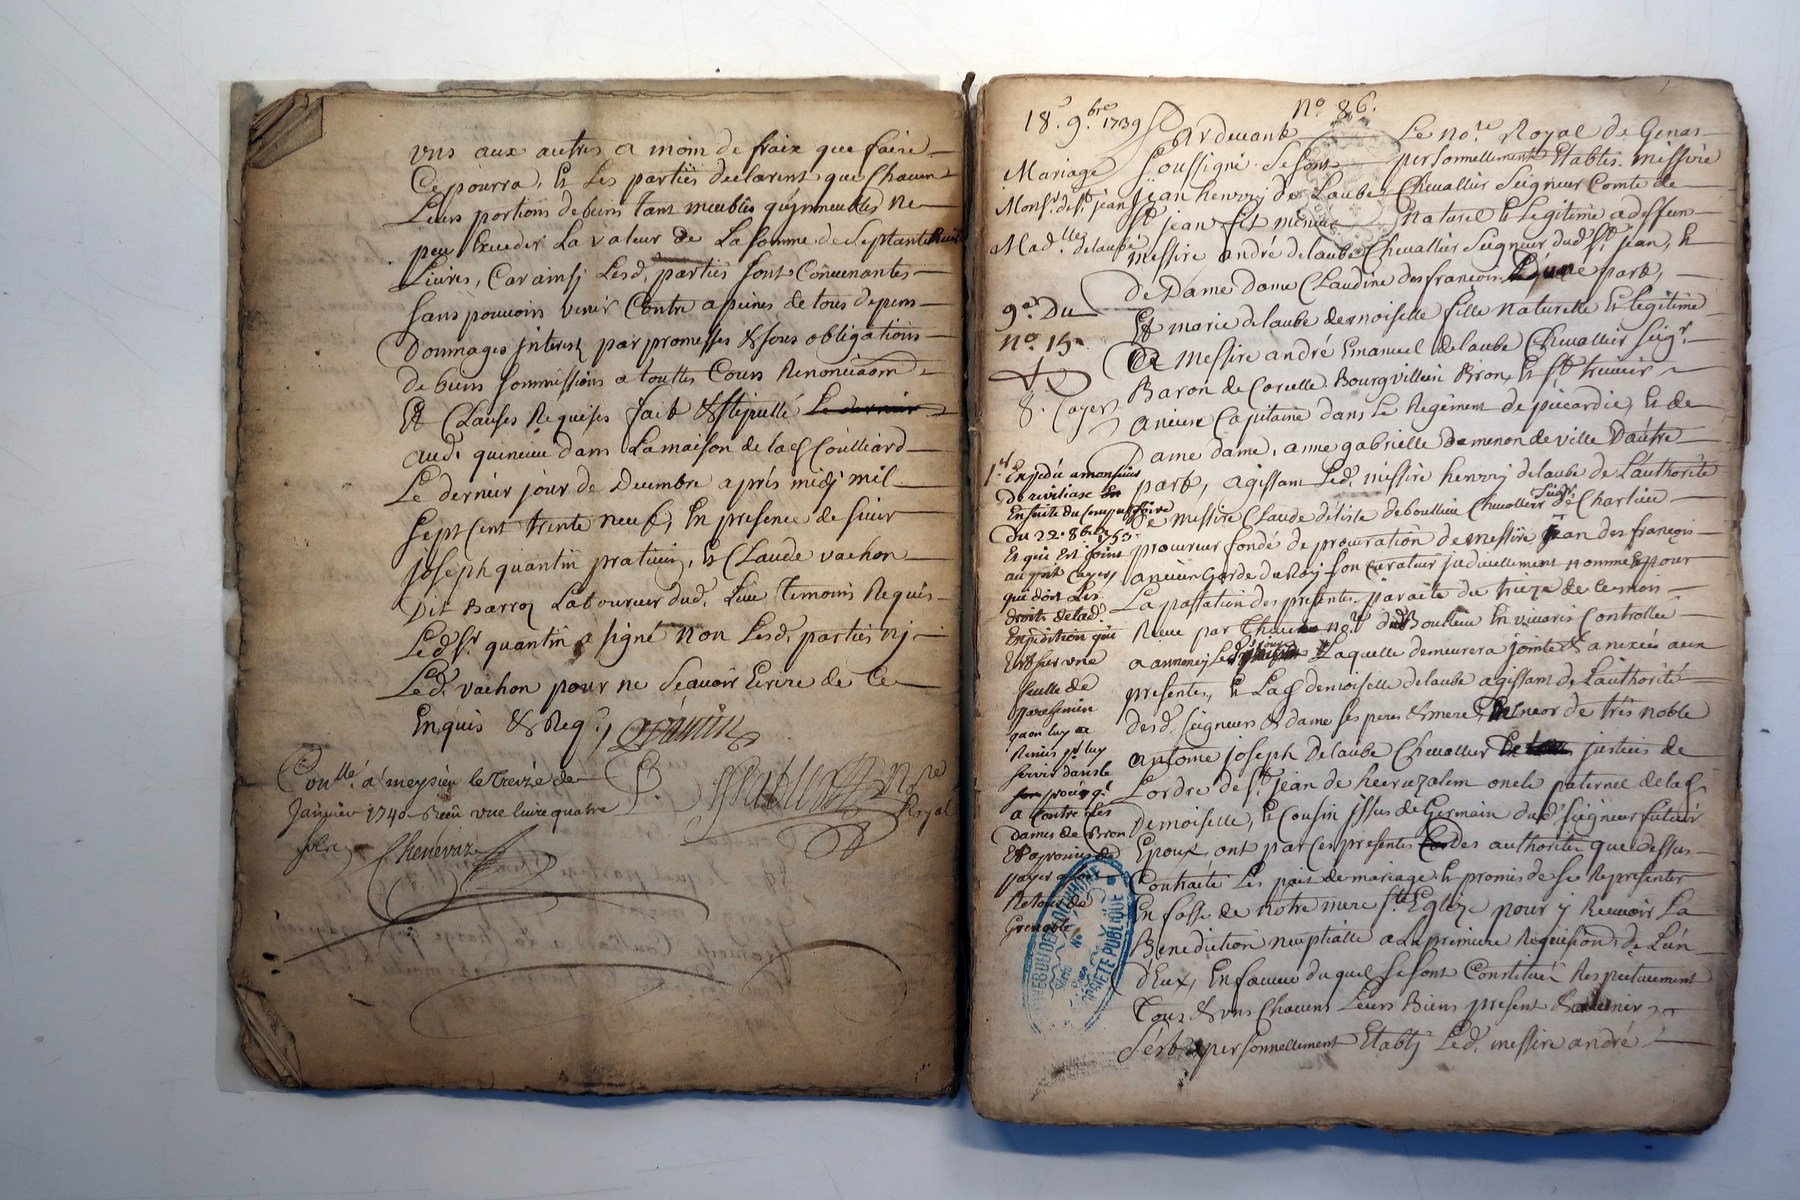 uns aux autres a moin de fraix que faire
Ce pourra, Et Les parties declarent que Chacun
Leurs portions de biens tant meubles qu'immeubles Ne
peu Exceder La valeur de La somme de septante huit
Livres, Car ainsy Lesd. parties sont Convenantes
sans pouvoirs venir Contre a peines de tous depens
Dommages interest par promesses & sous obligations
de biens sommissions a touttes Cours Renonciaõn
Et Clauses Requises fait & stipullé Le dernier
aud. dans La maison de lad. Couilliard
Le dernier jour de Decembre après midy mil
sept cent trente neuf, En presence de sieur
Joseph quantin praticien, & Claude vachon
Dit Barroz Laboureur dud. Lieu temoins Requis
Led. Sr. quantin a signé non Lesd. parties ny
Led. vachon pour ne sçavoir Ecrire de Ce
Enquis & Req.
Conllé. à meyzieu le treize de
Janvier 1740 Reçû une livre quatre
sols Chenevaz
Royal
18e. 9.bre 1739
No. 86.
Mariage
Monsr. de St. jean
Madlle. delaube
Pardevant Le nore. Royal de Genas
soussigné se sont personnellement Etablis messire
Jean henry de Laube Chevallier Seigneur Comte de
St. jean fils mineur naturel & legitime a deffun
messire andré delaube Chevallier Seigneur dud. St. jean, &
de Dame dame Claudine des francois d'une part,
9e. Du
no. 15.
8. Cayer
Et marie delaube demoiselle fille naturelle & legitime
De Messire andré Emanuel delaube Chevallier Seigr.
Baron de Corcelle Bourgvillein Bron, & St.
ancien Capitaine dans Le Regiment de picardie, & de
Dame dame, anne gabrielle de menon de ville D'autre
part, agissant Led. messire henry delaube de L'authorité
de messire Claude delisle deboullieu Chevallier Seigr. de Charlieu
procureur fondé de procuration de messire Jean des francois
ancien Garde du Roy son curateur judiciellement nommé & pour
La passation des presentes paraite du treize de ce mois
Recue par nore. du Boulieu En vivarais Controllé
a annonay Led. jour Laquelle demeurera jointe & anexée aux
presentes, & Lad. demoiselle delaube agissant de L'authorité
desd. seigneurs & dame ses peres & mere, de tres noble
antoine joseph delaube Chevallier justicié de
L'ordre de St. jean de hieruzalem oncle paternel de lad.
Demoiselle, & Cousin issus de Germain dud. seigneur futeur
Epoux, ont par ces presentes des authorites que dessus
Contracté Les pais de mariage & promis de se Representer
En fasse de notre mere Ste. Eglize pour y Recevoir La
Benediction neuptialle a La premiere Requisition de L'un
d'Eux, En faveur duquel se sont Constitués Respectivement
Tous & uns Chacuns Leurs Biens present & avenir
S'est personnellement Etably Led. messire andré
1er. Expedié a monsieur
De En
Ensuite du compulsoire
Du 22. 8bre. 1753.
Et qui Est joint
au pnt cayer
qui doit Les
droits de lad.
Expedition qui
Est sur une
feuille de
parchemin
qu'on luy a
Remis pr. luy
servir dans le
a Contre Les
dames de Bron
Et a promis de
payer a son
Retour de
Grenoble